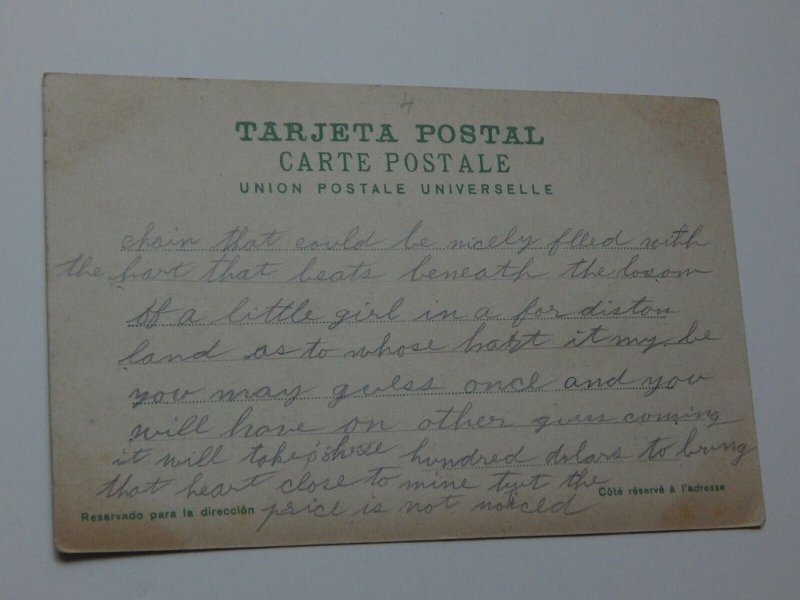 4
TARJETA POSTAL
CARTE POSTALE
UNION POSTALE UNIVERSELLE
chain that could be nicely flled with
the hart that beats beneath the bosom
of a little girl in a for diston
land as to whose hart it my be
you may guess once and you
will have on other guess coming
it will take three hundred dolars to bring
that heart close to mine but the
price is not noticed
Reservado para la dirección
Côté réservé à l'adresse